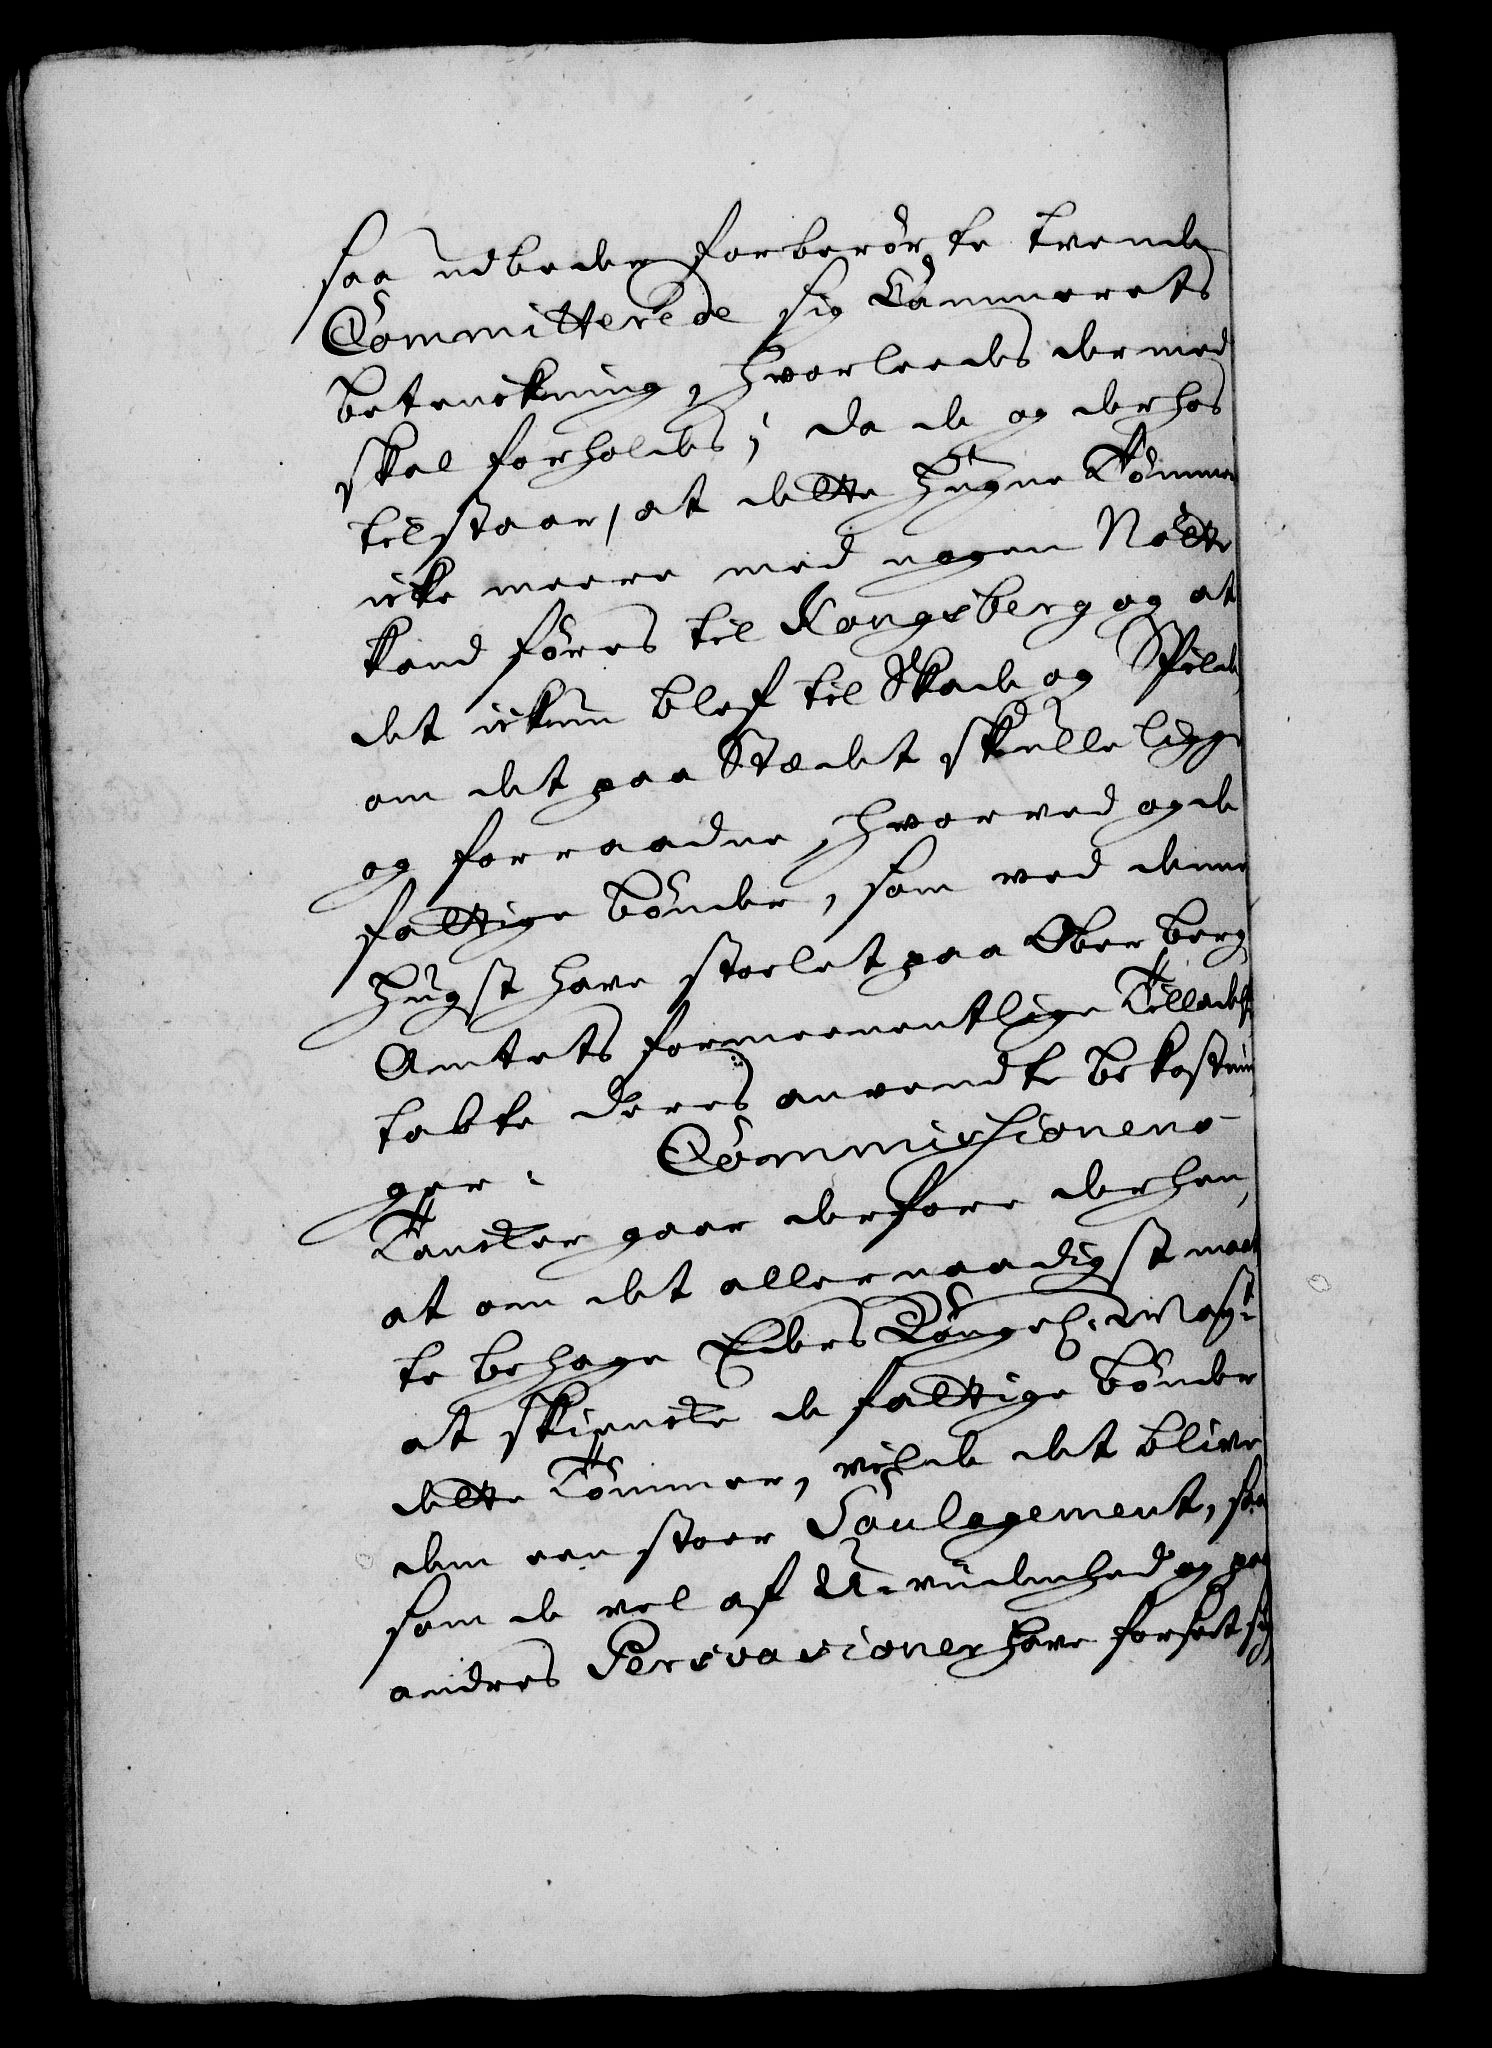 saa udbeder forberørte tvende
Committerede sig Cammerets
betenckning, hvorleedes dermed
skal forholdes; da de og derhos
tilstaar, at dette hugne Tømmer
icke meere med nogen Nøtte
kand føres til Kongsberg og at
det ickun blef til Skade og Spilde,
om det paa Stædet skulle ligge
og forraadne, hvorved og de
fattige bønder, som ved denne
hugst have stoelet paa Ober berg
Amtets formeentlige Tilladelse
tabte deres anvendte bekostnin
ger. Commissionens
Tancker gaar derfore derhen,
at om det allernaadigst maat
te behage Eders Kongel. Mayt.
at skiencke de fattige bønder
dette Tømmer, vilde det blive
dem een stoer Soulagement, saa
som de vel af U-viidenhed og paa
andres Persvasioner have forseet sig,